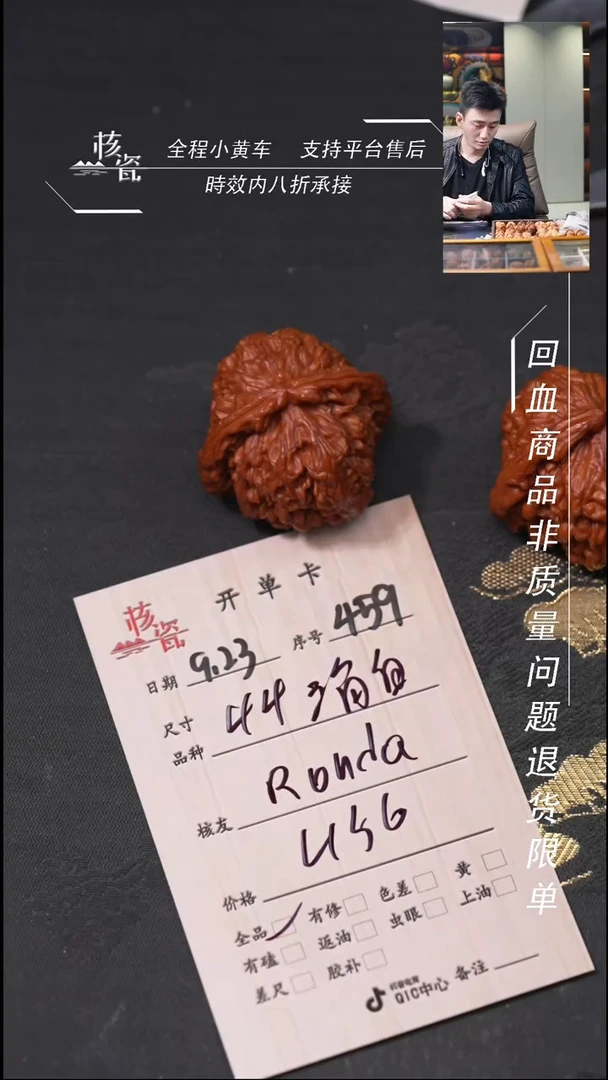 核瓷
全程小黄车 支持平台售后
時效内八折承接
回血商品非质量问题退货限单
核瓷
开单卡
日期 9.23 序号 459
尺寸
品种 44
核友 Ronda
价格 456
全品 有修 色差 黄
有磕 返油 虫眼 上油
差尺 胶补
抖音电商
QIC中心 备注